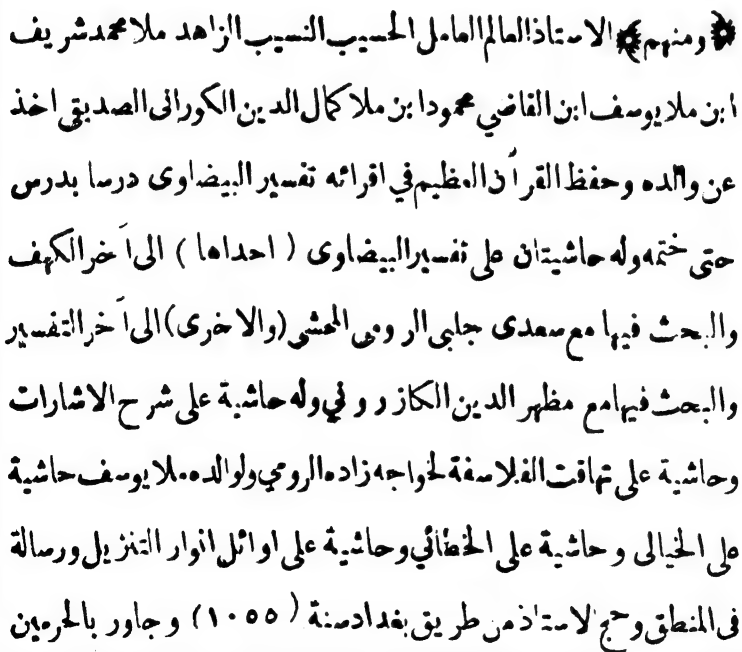 ﴿ومنهم﴾ الاستاذ العالم العامل الحسيب النسيب الزاهد ملا محمد شريف
ابن ملا يوسف ابن القاضي محمود ابن ملا كمال الدين الكورانى الصديقى اخذ
عن والده وحفظ القرآن العظيم في اقرائه تفسير البيضاوى درسا بدرس
حتى ختمه وله حاشيتان على تفسير البيضاوى ( احداها ) الى آخر الكهف
والبحث فيها مع سعدى جلبى الرومى المحشى (والاخرى) الى آخر التفسير
والبحث فيها مع مظهر الدين الكازروني وله حاشية على شرح الاشارات
وحاشية على تهافت الفلاسفة لخواجه زاده الرومي ولوالده ملا يوسف حاشية
على الخيالى وحاشية على الخطائي وحاشية على اوائل انوار التنزيل ورسالة
فى المنطق وحج الاستاذ من طريق بغداد سنة (١٠٥٥) وجاور بالحرمين